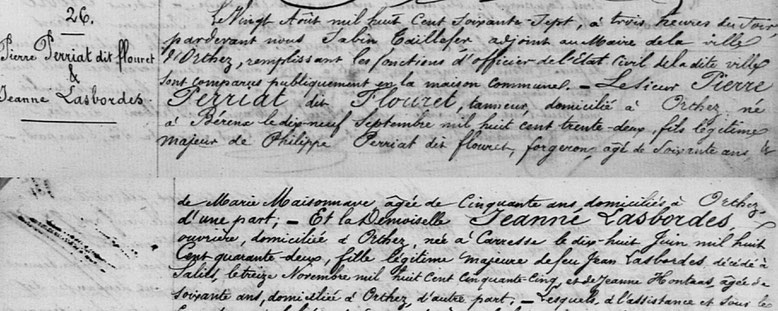 26.
Pierre Perriat dit flouret
&
Jeanne Lasbordes.
Le Vingt Août mil huit Cent Soixante-Sept, à trois heures du Soir
pardevant nous Sabin Taillefer adjoint au Maire de la ville
d'Orthez, remplissant les fonctions d'officier de l'état Civil de la dite ville
sont comparus publiquement en la maison commune. — Le Sieur Pierre
Perriat dit Flouret, tanneur, domicilié à Orthez, né
à Bérenx le dix-neuf Septembre mil huit cent trente-deux, fils légitime
majeur de Philippe Perriat dit flouret, forgeron, agé de Soixante ans &
de Marie Maisonnave agée de Cinquante ans, domiciliés à Orthez
d'une part; — Et la Demoiselle Jeanne Lasbordes
ouvrière, domiciliée à Orthez, née à Carresse le dix-huit Juin mil huit
Cent quarante-deux, fille légitime majeure de feu Jean Lasbordes décédé à
Salies, le treize Novembre mil huit Cent Cinquante-Cinq, et de Jeanne Hontaas, agée de
Soixante ans, domiciliée à Orthez, d'autre part; — Lesquels, d'l'assistance et sous le